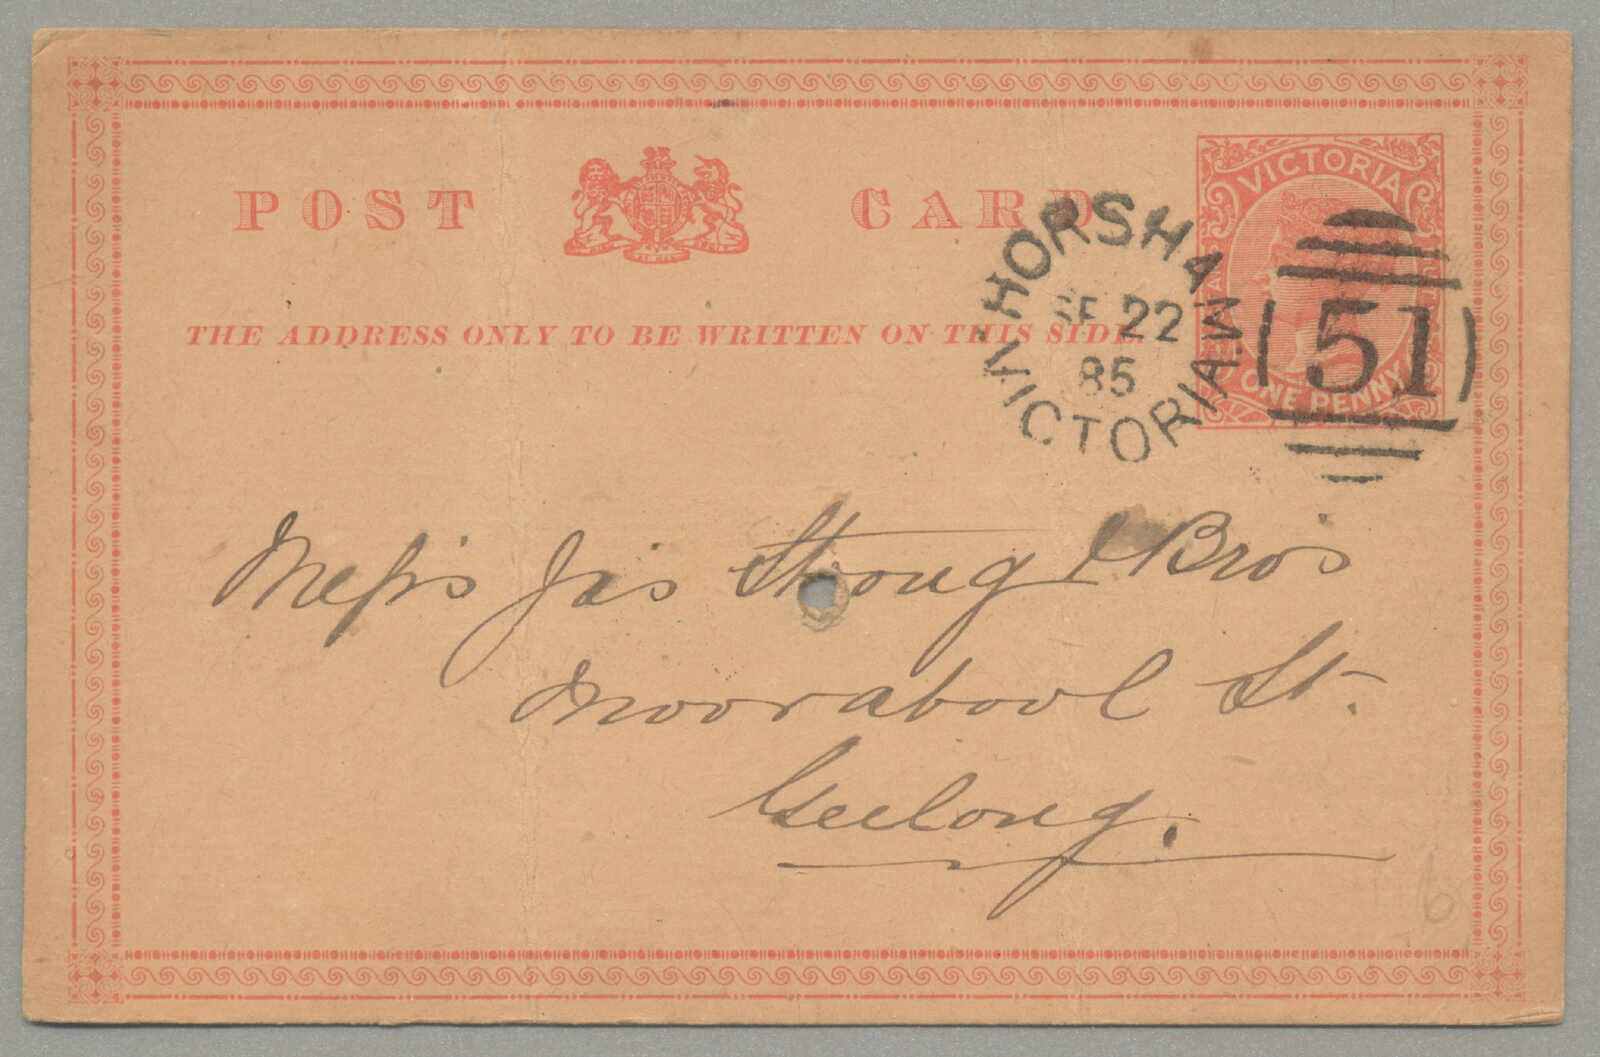 POST CARD
VICTORIA
THE ADDRESS ONLY TO BE WRITTEN ON THIS SIDE.
ONE PENNY
HORSHAM
SE 22
85
VICTORIA
51
Messrs Jas Strong & Bros
Moorabool St.
Geelong.
6